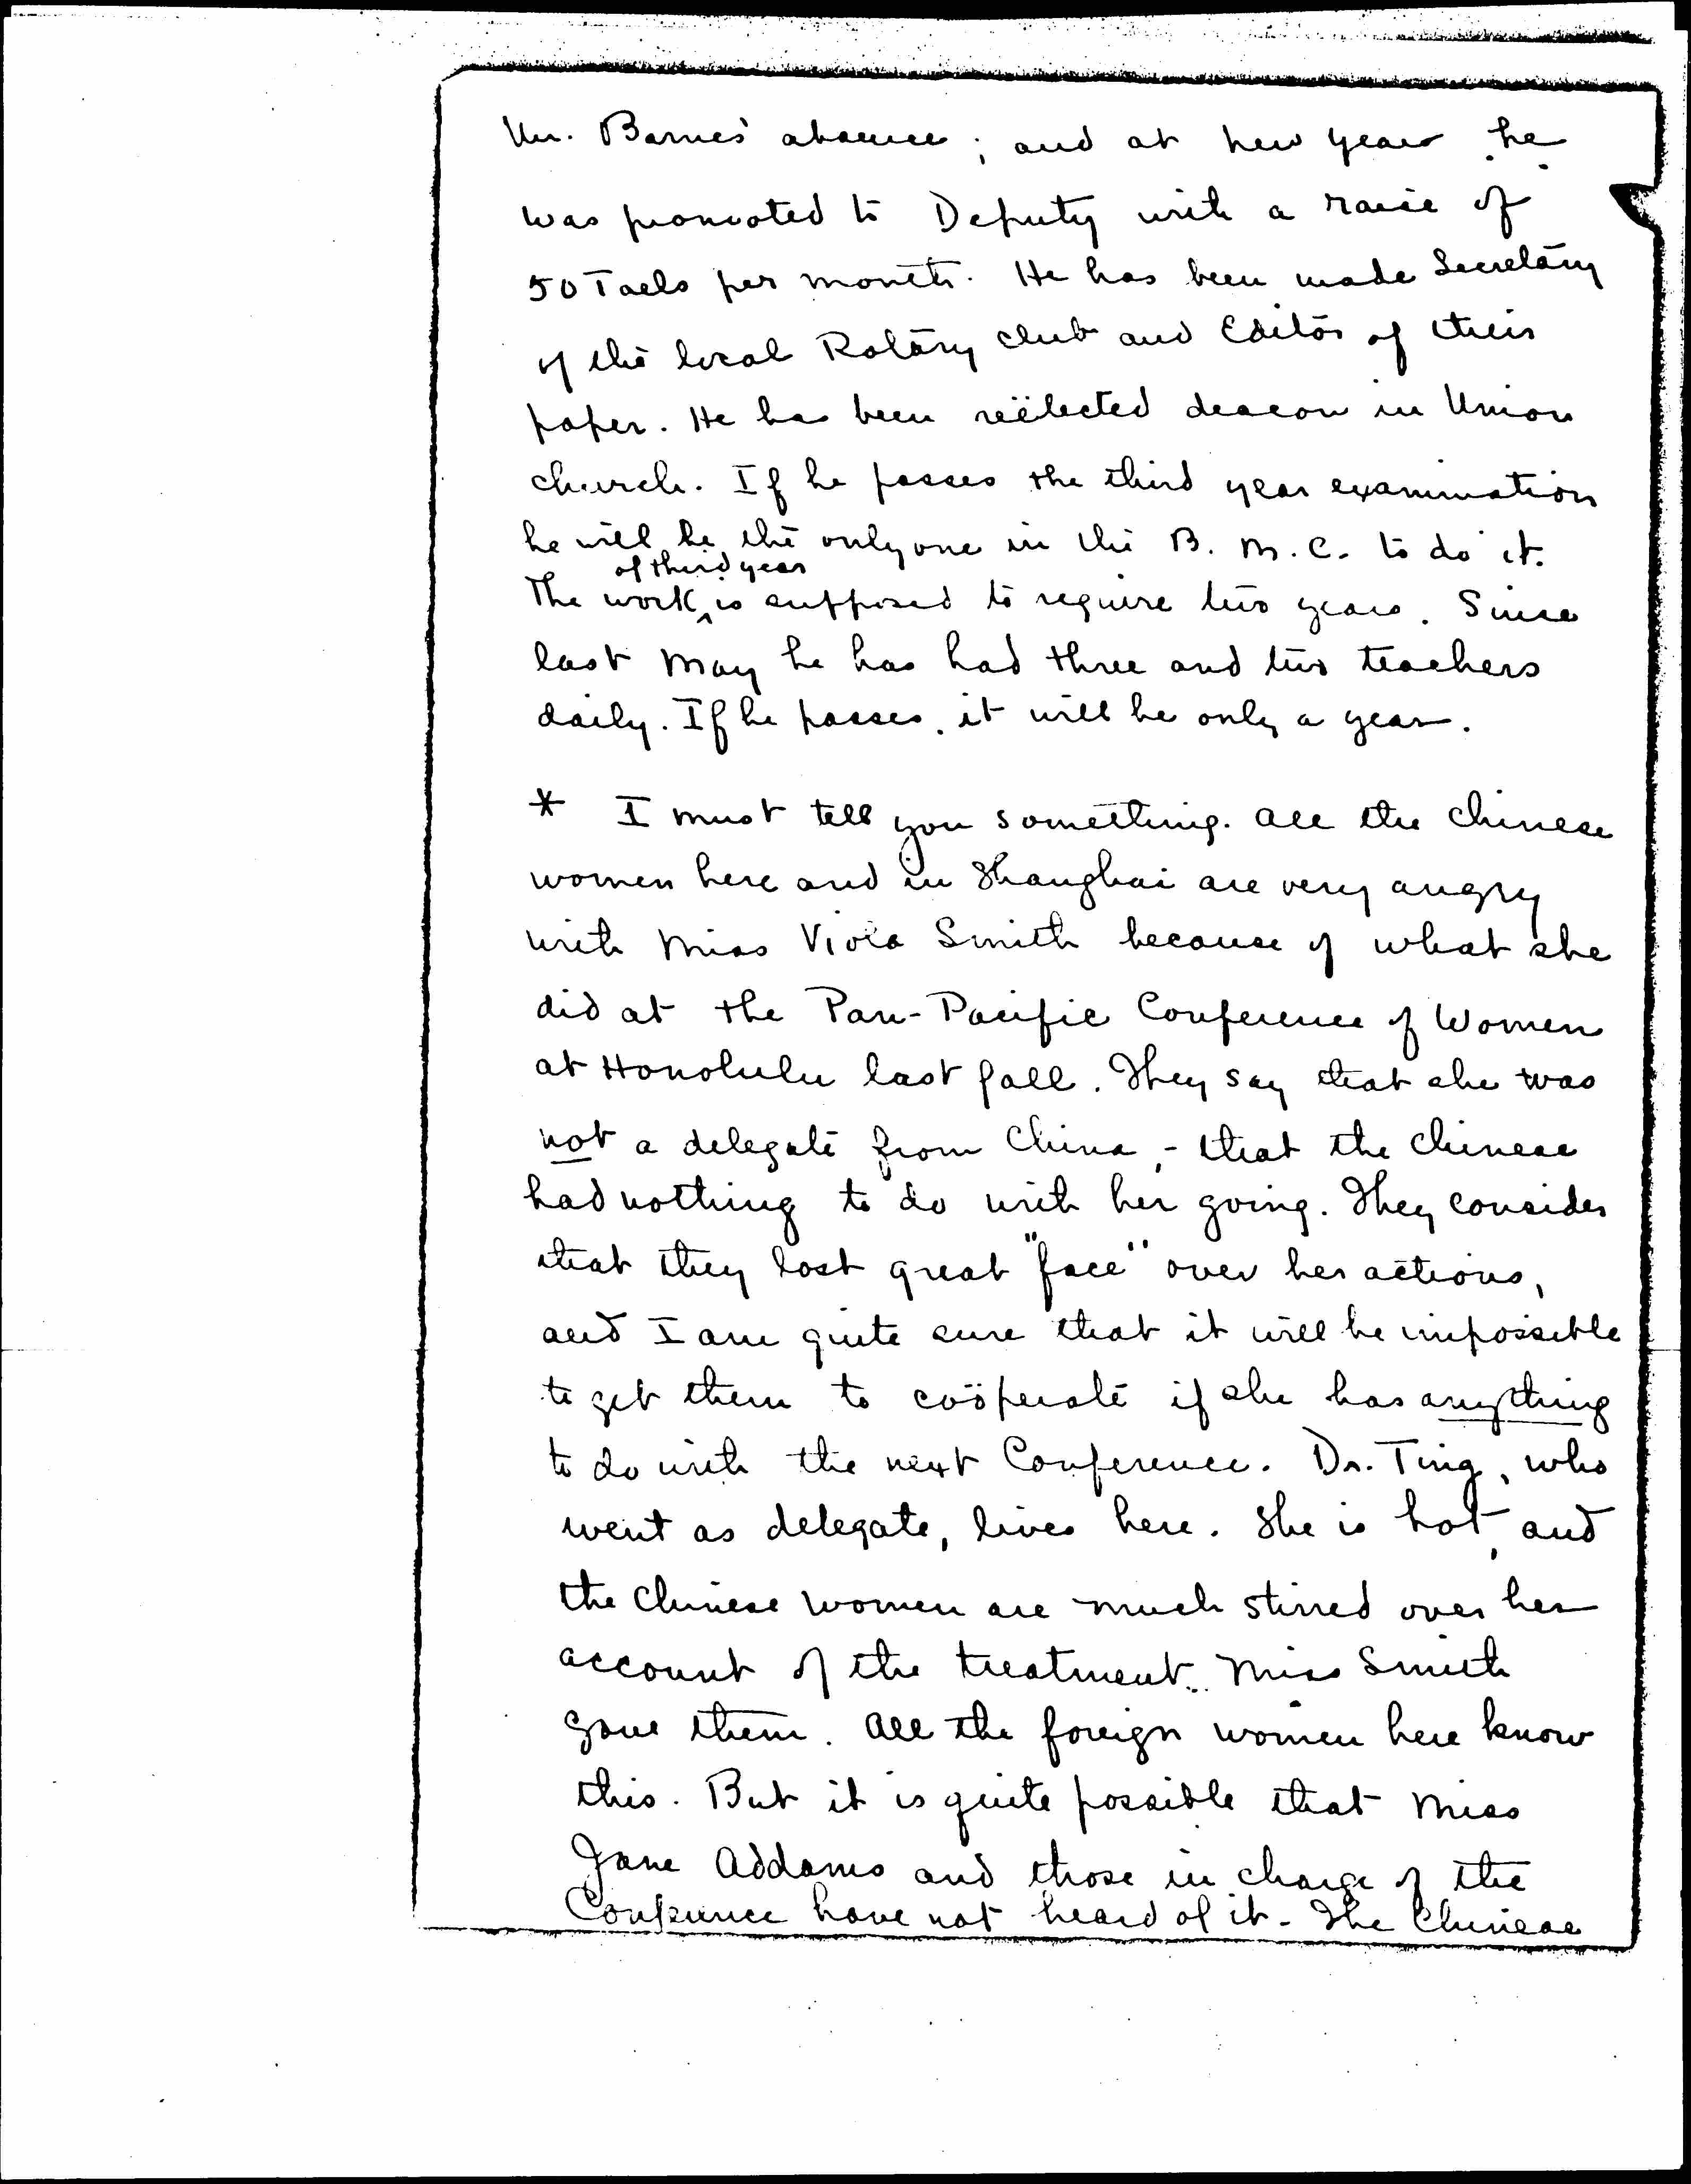 Mr. Barnes' absence; and at new years he
was promoted to Deputy with a raise of
50 Taels per month. He has been made Secretary
of the local Rotary club and Editor of their
paper. He has been reëlected deacon in Union
church. If he passes the third year examination
he will be the only one in the B. M. C. to do it.
of third year
The work ^ is supposed to require two years. Since
last May he has had three and two teachers
daily. If he passes, it will be only a year.
* I must tell you something. All the Chinese
women here and in Shanghai are very angry
with Miss Viola Smith because of what she
did at the Pan-Pacific Conference of Women
at Honolulu last fall. They say that she was
not a delegate from China, - that the Chinese
had nothing to do with her going. They consider
that they lost great "face" over her actions,
and I am quite sure that it will be impossible
to get them to coöperate if she has anything
to do with the next Conference. Dr. Ting, who
went as delegate, lives here. She is hot, and
the Chinese women are much stirred over her
account of the treatment Miss Smith
gave them. All the foreign women here know
this. But it is quite possible that Miss
Jane Addams and those in charge of the
Conference have not heard of it - The Chinese